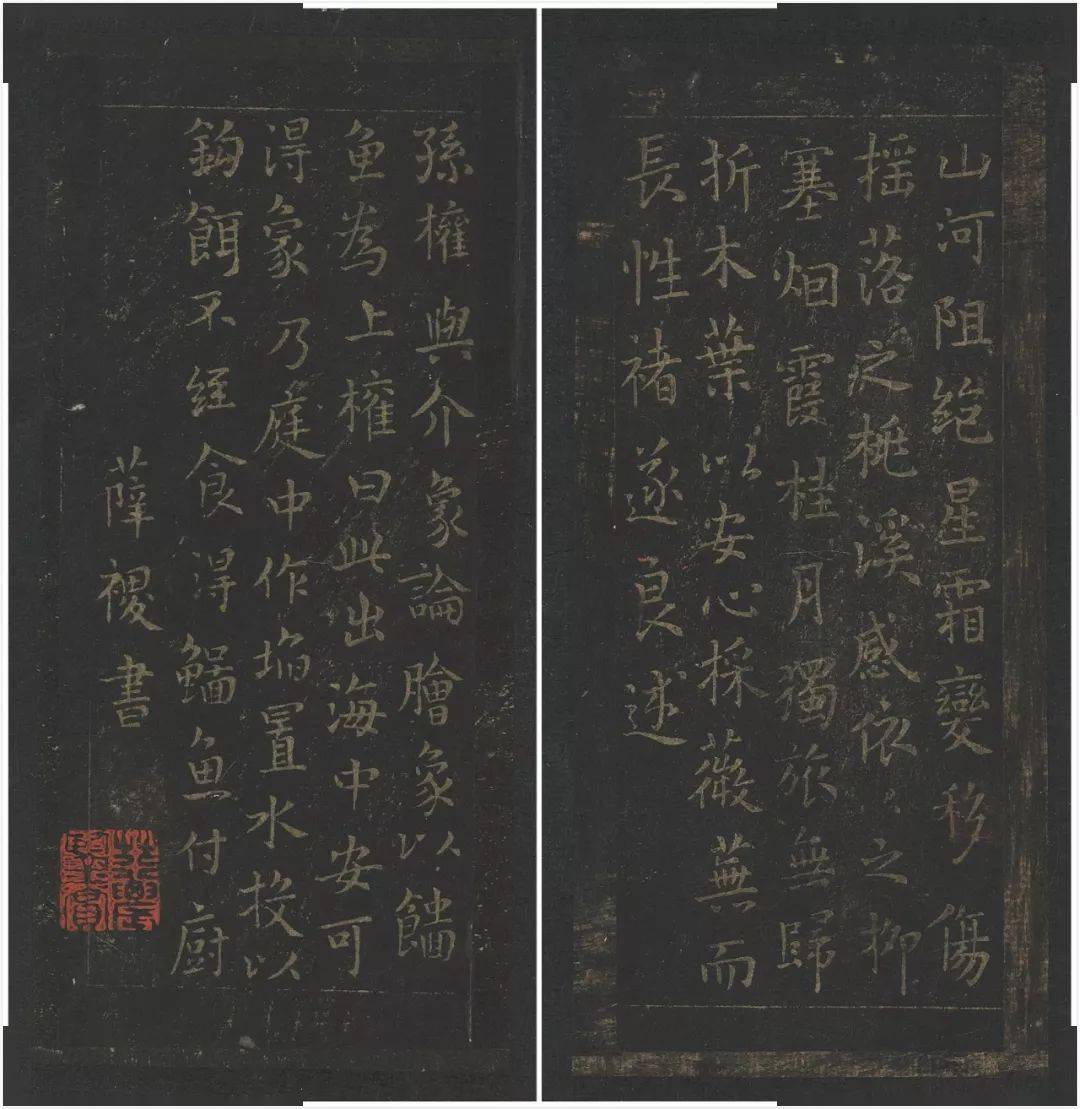 山河阻絕星霜變移傷
搖落之桃溪感依〻之柳
塞烟霞桂月獨旅無歸
折木葉以安心採薇蕪而
長性褚遂良述
孫權與介象論膾象以鯔
魚為上權曰此出海中安可
得象乃庭中作埳置水投以
鈎餌不經食得鯔魚付厨
薛稷書